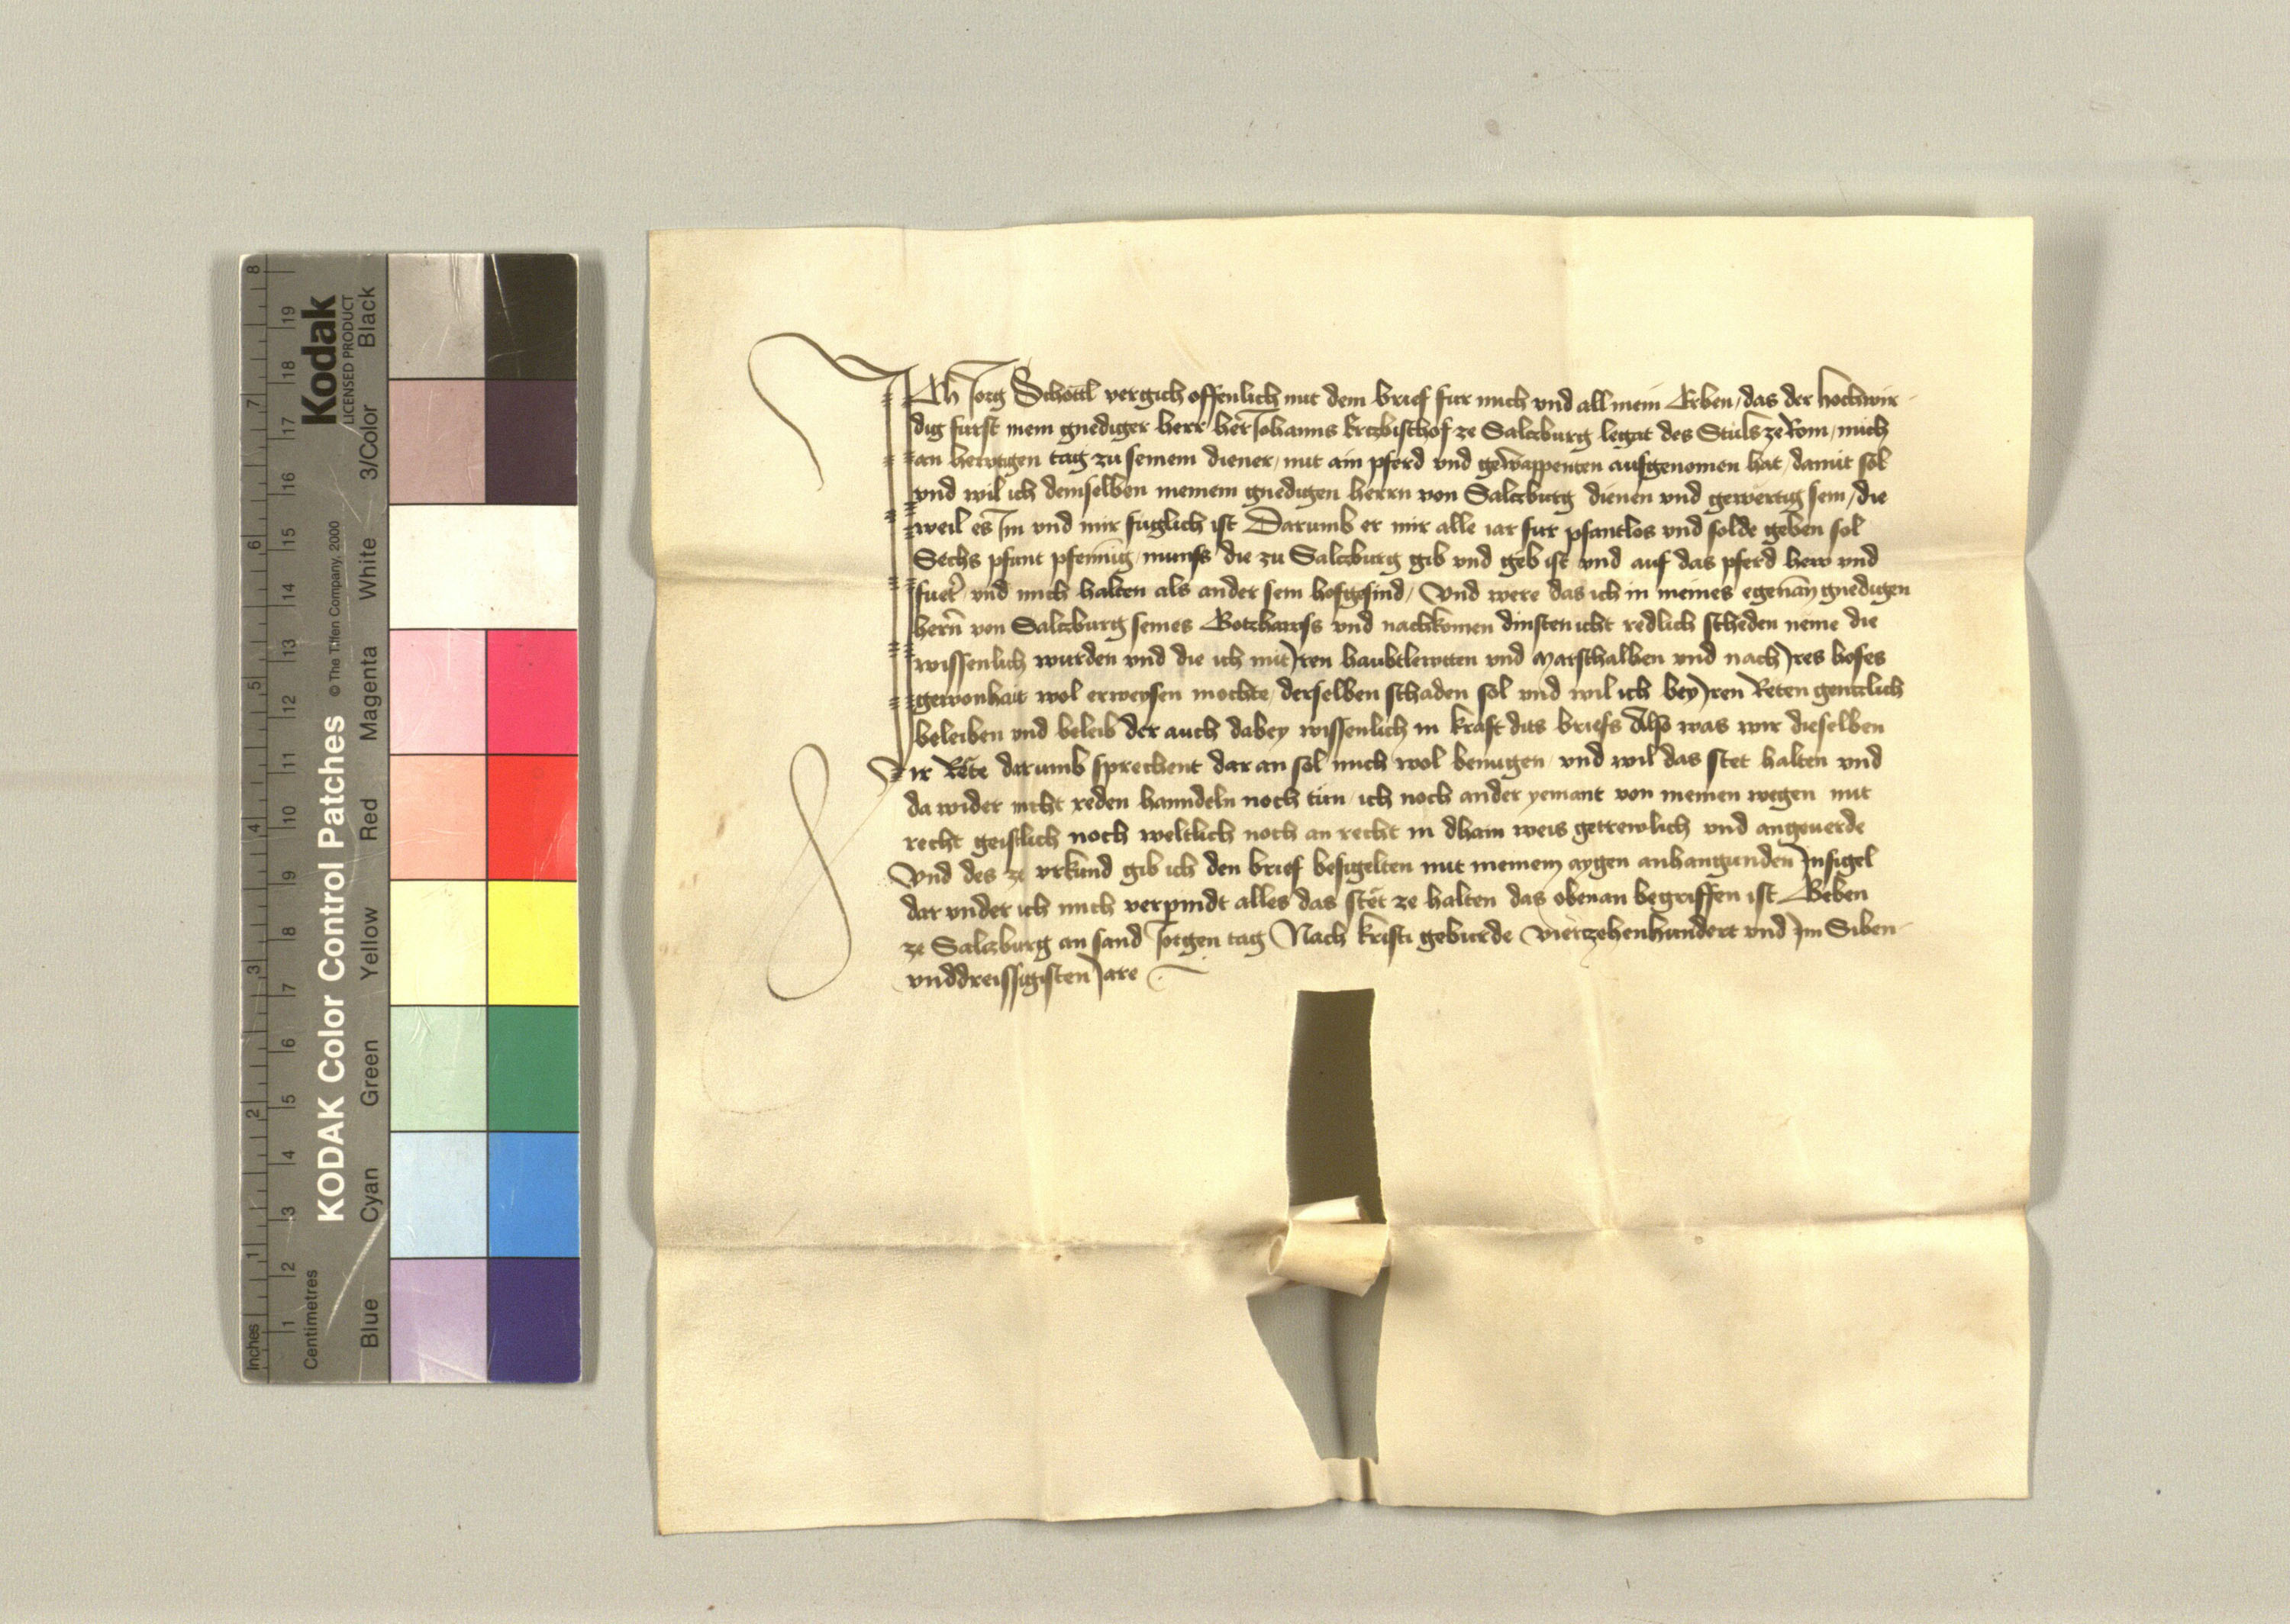 Ich Jorg Schottl vergich offenlich mit dem brief fur mich und all mein Erben, das der hochwir-
dig furst mein gnediger herr her Johanns Ertzbischof ze Salczburg legat des Stuls ze Rom, mich
an hewtigen tag zu seinem diener, mit ain pferd und gewappenten aufgenomen hat, damit sol
und wil ich demselben meinem gnedigen herrn von Salczburg dienen und gewertig sein, die
weil es Im und mir fuglich ist Darumb er mir alle iar fur pfantlos und solde geben sol
Sechs pfunt pfennig munss die zu Salczburg gib und geb ist und auf das pferd hew und
fueter und mich halten als ander sein hofgesind, Und were das ich in meines egenan gnedigen
hern von Salczburg seines Gotzhawss und nachkomen dinsten icht redlich scheden neme die
wissenlich wurden und die ich mit Iren haubtlewten und Marschalken und nach Ires hofes
gewonhait wol erweysen mochte, derselben schaden sol und wil ich bey Iren Reten genczlich
beleiben und beleib der auch dabey wissenlich in kraft dits briefs Also was mir dieselben
Ir Rete darumb sprechent dar an sol mich wol benugen und wil das stet halten und
da wider nicht reden hanndeln noch tun, ich noch ander yemant von meinen wegen mit
recht geistlich noch weltlich noch an recht in dhain weis getrewlich und angeverde
Und des ze urkund gib ich den brief besigelten mit meinem aygen anhangunden Insigel
dar under ich mich verpindt alles das stet ze halten das obenan begriffen ist Geben
ze Salczburg an sand Jorgen tag Nach kristi geburde Viertzehenhundert und Im Siben-
unddreissigisten Jare
Kodak
LICENSED PRODUCT
KODAK Color Control Patches
© The Tiffen Company, 2000
Black
3/Color
White
Magenta
Red
Yellow
Green
Cyan
Blue
Inches
1 2 3 4 5 6 7 8
Centimetres
1 2 3 4 5 6 7 8 9 10 11 12 13 14 15 16 17 18 19